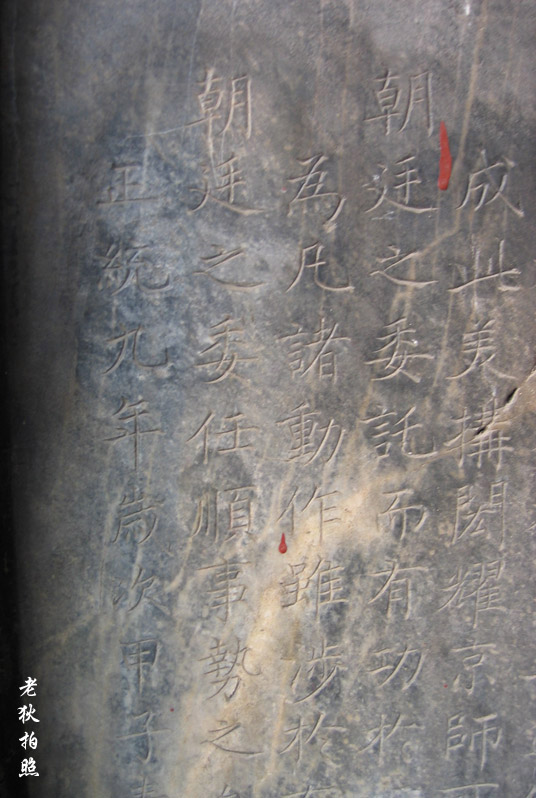 成此美構閎耀京師
朝廷之委託而有功於
為凡諸動作雖涉於有
朝廷之委任順事勢之
正統九年歲次甲子
老狄拍照